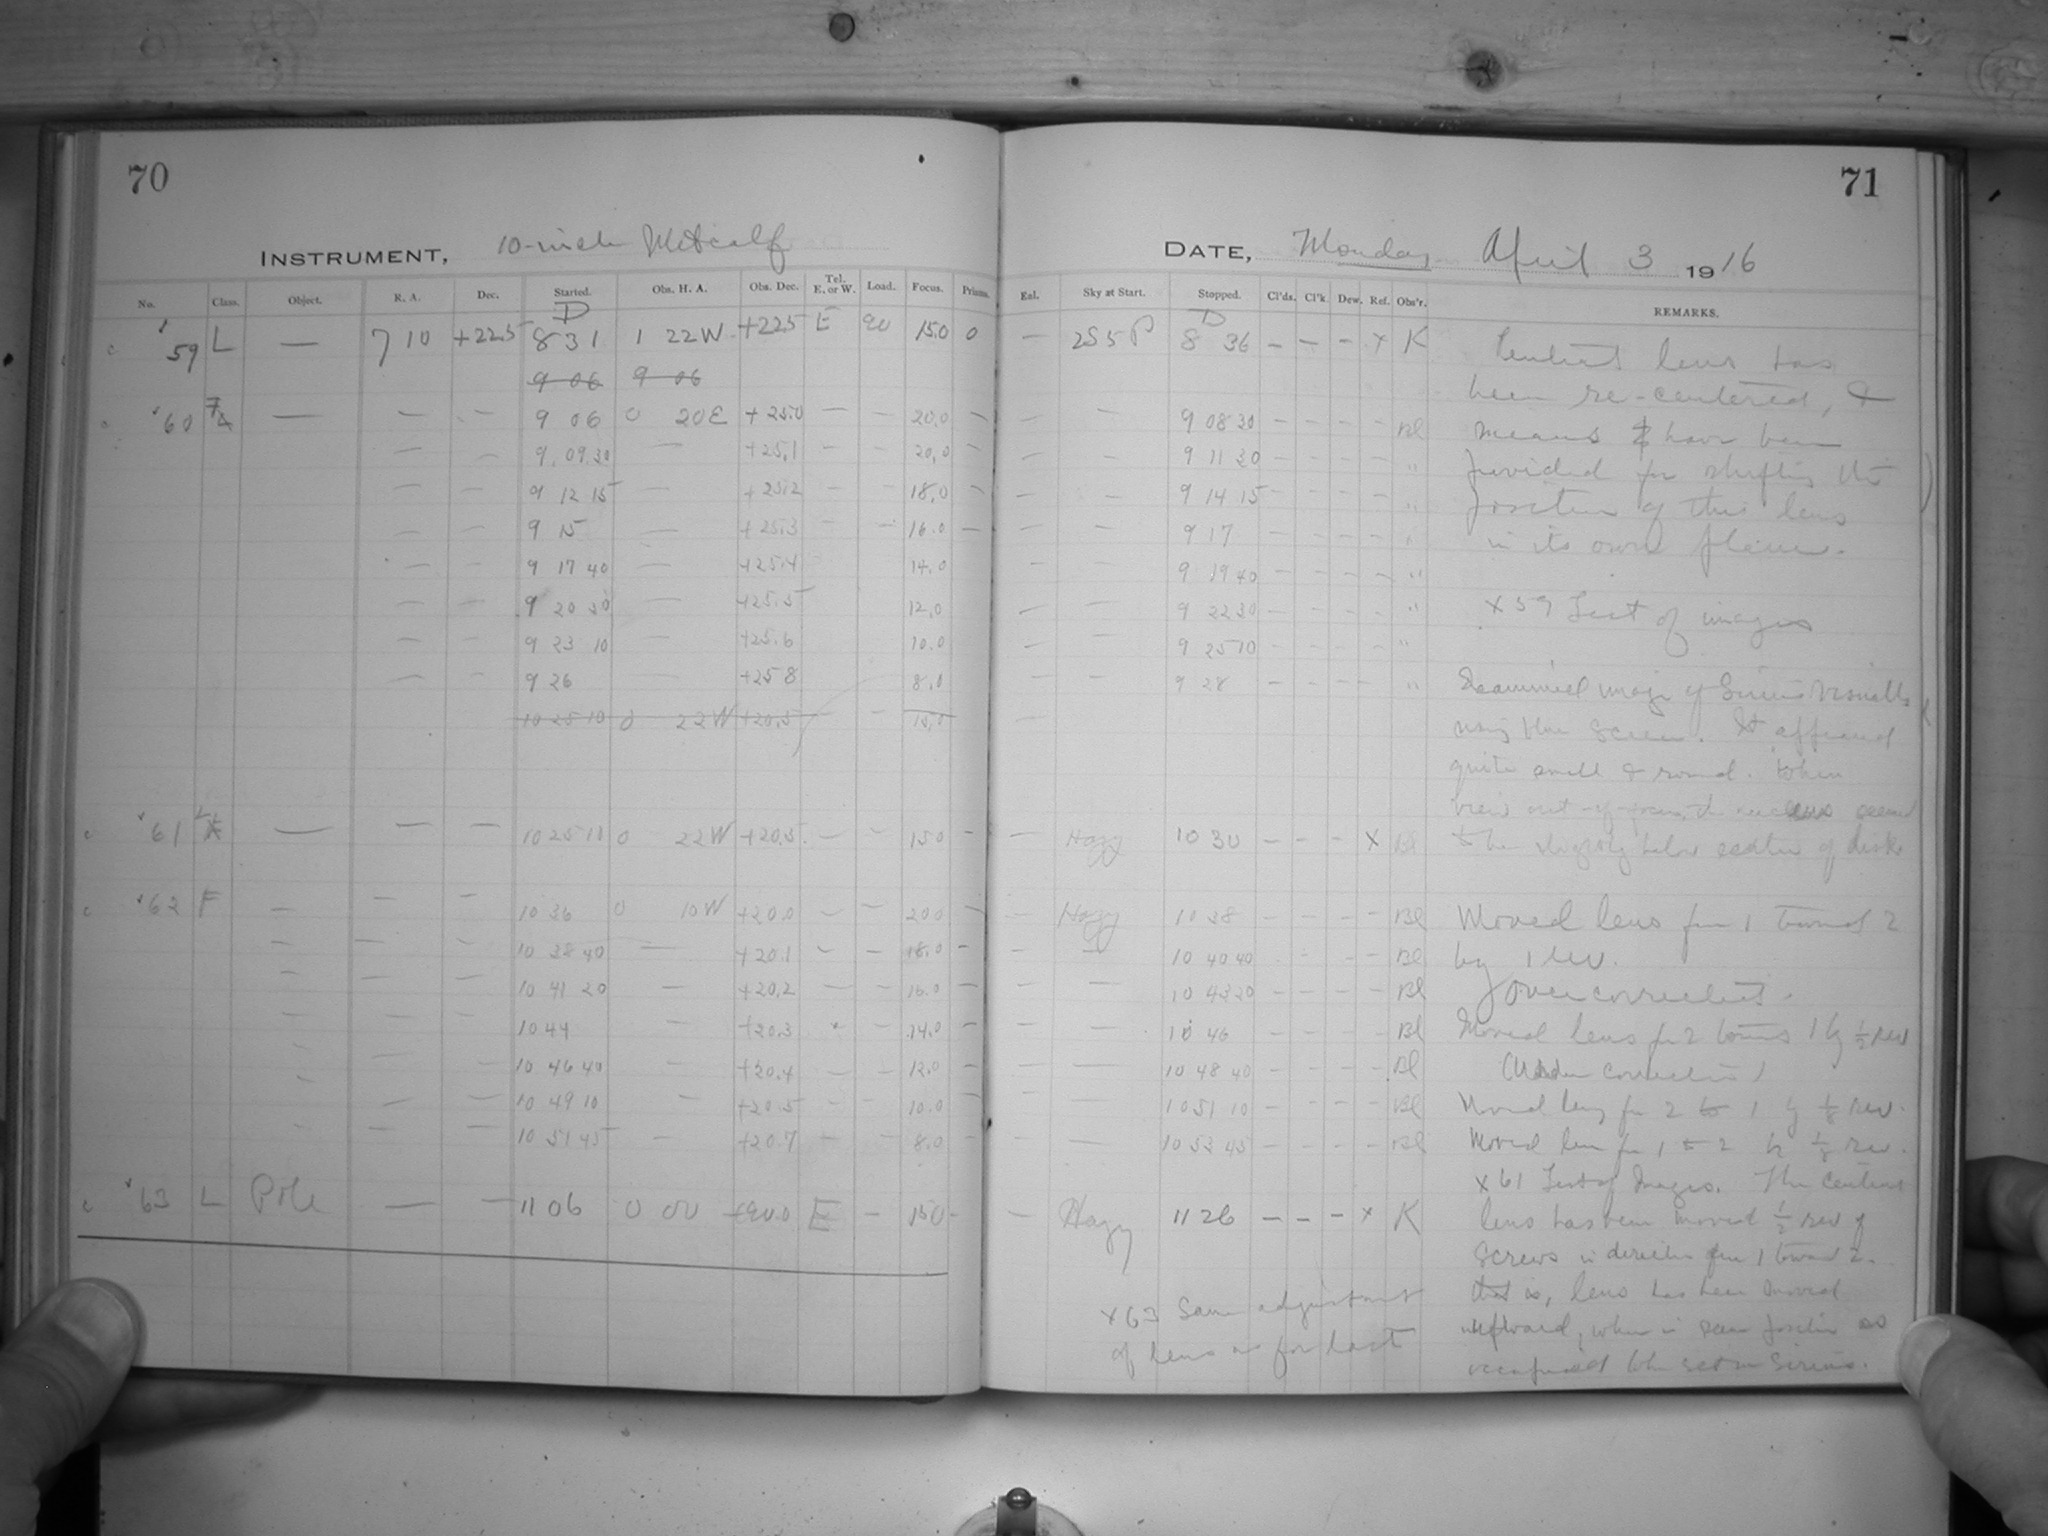 70
INSTRUMENT, 10-inch Metcalf
No. Class. Object. R. A. Dec. Started. Obs. H. A. Obs. Dec. Tel. E. or W. Load. Focus. Prisms.
D
59 L — 7 10 +22.5 8 31 1 22W +22.5 E 90 15.0 0
9 06 9 06
60 F — — — 9 06 0 20E +25.0 — — 20.0 —
— — 9 09 30 — +25.1 — — 20.0 —
— — 9 12 15 — +25.2 — — 18.0 —
— — 9 15 — +25.3 — — 16.0 —
— — 9 17 40 — +25.4 14.0
— — 9 20 30 — +25.5 12.0
— — 9 23 10 — +25.6 10.0
— — 9 26 — +25 8 8.0
10 25 10 0 22W +20.5 — — 15.0
61 L — — — 10 25 10 0 22W +20.5 — — 15.0 —
62 F — — — 10 36 0 10W +20.0 — — 20.0 —
— — — 10 38 40 — +20.1 — — 18.0 —
— — — 10 41 20 — +20.2 — — 16.0 —
— — — 10 44 — +20.3 — 14.0 —
— — — 10 46 40 — +20.4 — — 12.0 —
— — — 10 49 10 — +20.5 — — 10.0 —
— — — 10 51 45 — +20.7 — — 8.0 —
63 L Pole — — 11 06 0 00 +90.0 E — 15.0 —
71
DATE, Monday April 3 1916
Eel. Sky at Start. Stopped. Cl'ds. Cl'k. Dew. Ref. Obs'r. REMARKS.
D
— 2S5P 8 36 — — — x K
— — 9 08 30 — — — — Bl
— — 9 11 30 — — — — "
— — 9 14 15 — — — — "
— — 9 17 — — — — "
— — 9 19 40 — — — — "
— — 9 22 30 — — — — "
— — 9 25 10 — — — — "
— — 9 28 — — — — "
— Hazy 10 30 — — — x Bl
— Hazy 10 38 — — — — Bl
— — 10 40 40 — — — Bl
— — 10 43 20 — — — — Bl
— — 10 46 — — — — Bl
— — 10 48 40 — — — — Bl
— — 10 51 10 — — — — Bl
— — 10 53 45 — — — — Bl
— Hazy 11 26 — — — x K
x 63 Same adjustment
of lens as for last
lens has
been re-centered, &
means have been
provided for shifting the
position of this lens
in its own plane.
x 59 Test of images
Examined image of Sirius visually
using blue screen. It appeared
quite small & round. When
out-of-focus, the seemed
to be slightly below center of disk
Moved lens from 1 toward 2
by 1 rev.
Over correction.
Moved lens from 2 towards 1 by ½ rev
Under correction
Moved lens from 2 to 1 by ⅛ rev.
Moved lens from 1 to 2 by rev.
x 61 Test of Images. The central
lens has been moved ½ rev of
screws in direction from 1 toward 2.
that is, lens has been moved
upward, when in position as
when set on Sirius.